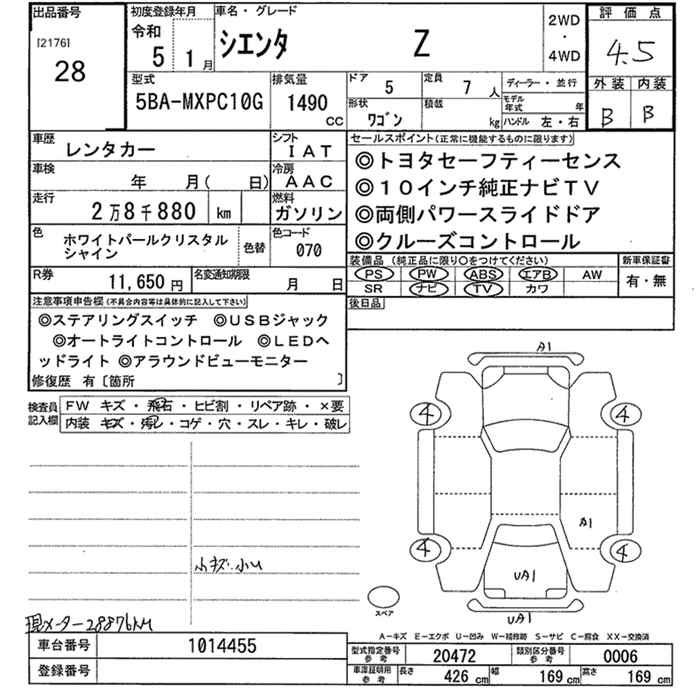 出品番号
[2176]
28
初度登録年月
令和
5 1月
車名・グレード
シエンタ Z
2WD
・
4WD
評価点
4.5
外装 内装
B B
型式
5BA-MXPC10G
排気量
1490
CC
ドア 5
定員 7 人
ディーラー・並行
形状 ワゴン
積載 kg
モデル年式 年
ハンドル 左・右
車歴 レンタカー
シフト IAT
車検 年 月( 日)
冷房 AAC
走行 2万8千880 km
燃料 ガソリン
色 ホワイトパールクリスタルシャイン
色替
色コード 070
R券 11,650円
名変通知期限 月 日
セールスポイント(正常に機能するものに限ります)
◎トヨタセーフティーセンス
◎10インチ純正ナビTV
◎両側パワースライドドア
◎クルーズコントロール
装備品 (純正品に限り○をつけてください)
新車保証書
PS PW ABS エアB AW
有・無
SR ナビ TV カワ
後日品
注意事項申告欄(不具合内容等は具体的に記入して下さい)
◎ステアリングスイッチ ◎USBジャック
◎オートライトコントロール ◎LEDヘ
ッドライト ◎アラウンドビューモニター
修復歴 有〔箇所 〕
検査員記入欄
FW キズ・飛石・ヒビ割・リペア跡・×要
内装 キズ・汚れ・コゲ・穴・スレ・キレ・破レ
小キズ・小凹
現メーター28876KM
A1
4 4
A1
4 4
UA1
UA1
スペア
A-キズ E-エクボ U-凹み W-補修跡 S-サビ C-腐食 XX-交換済
車台番号 1014455
登録番号
型式指定番号 参考 20472
類別区分番号 参考 0006
車庫証明用 参考
長さ 426 cm
幅 169 cm
高さ 169 cm